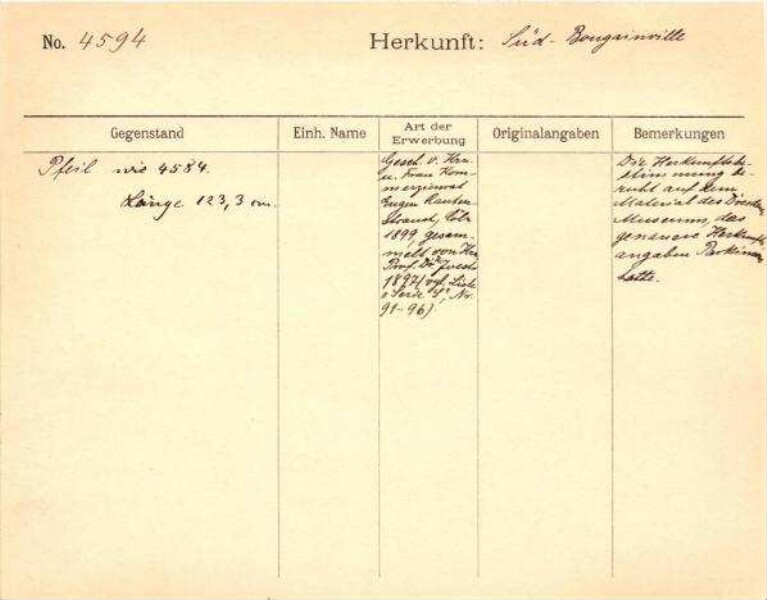 No. 4594
Herkunft: Süd-Bougainville
Gegenstand
Einh. Name
Art der Erwerbung
Originalangaben
Bemerkungen
Pfeil wie 4584.
Länge 123,3 cm.
Gesch. v. Hrn.
u. Frau Kom-
merzienrat
Eugen Rauten-
strauch, Cöln
1899, gesam-
melt von Hrn
Prof. Dr. Joest
1897 (vgl. Liste
Serie Nr.
91-96).
Die Herkunftsbe-
stimmung be-
ruht auf dem
Material des Dresdn.
Museums, das
genauere Herkunfts-
angaben Parkinsons
hatte.